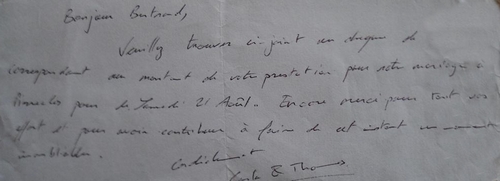 Bonjour Bertrand,
Veuillez trouver ci-joint un chèque de
correspondant au montant de votre prestation pour notre mariage à
pour le Samedi 21 Août. Encore merci pour tout vos
effort et pour avoir contribuer à faire de cet instant un moment
inoubliable.
Cordialement
& Thomas